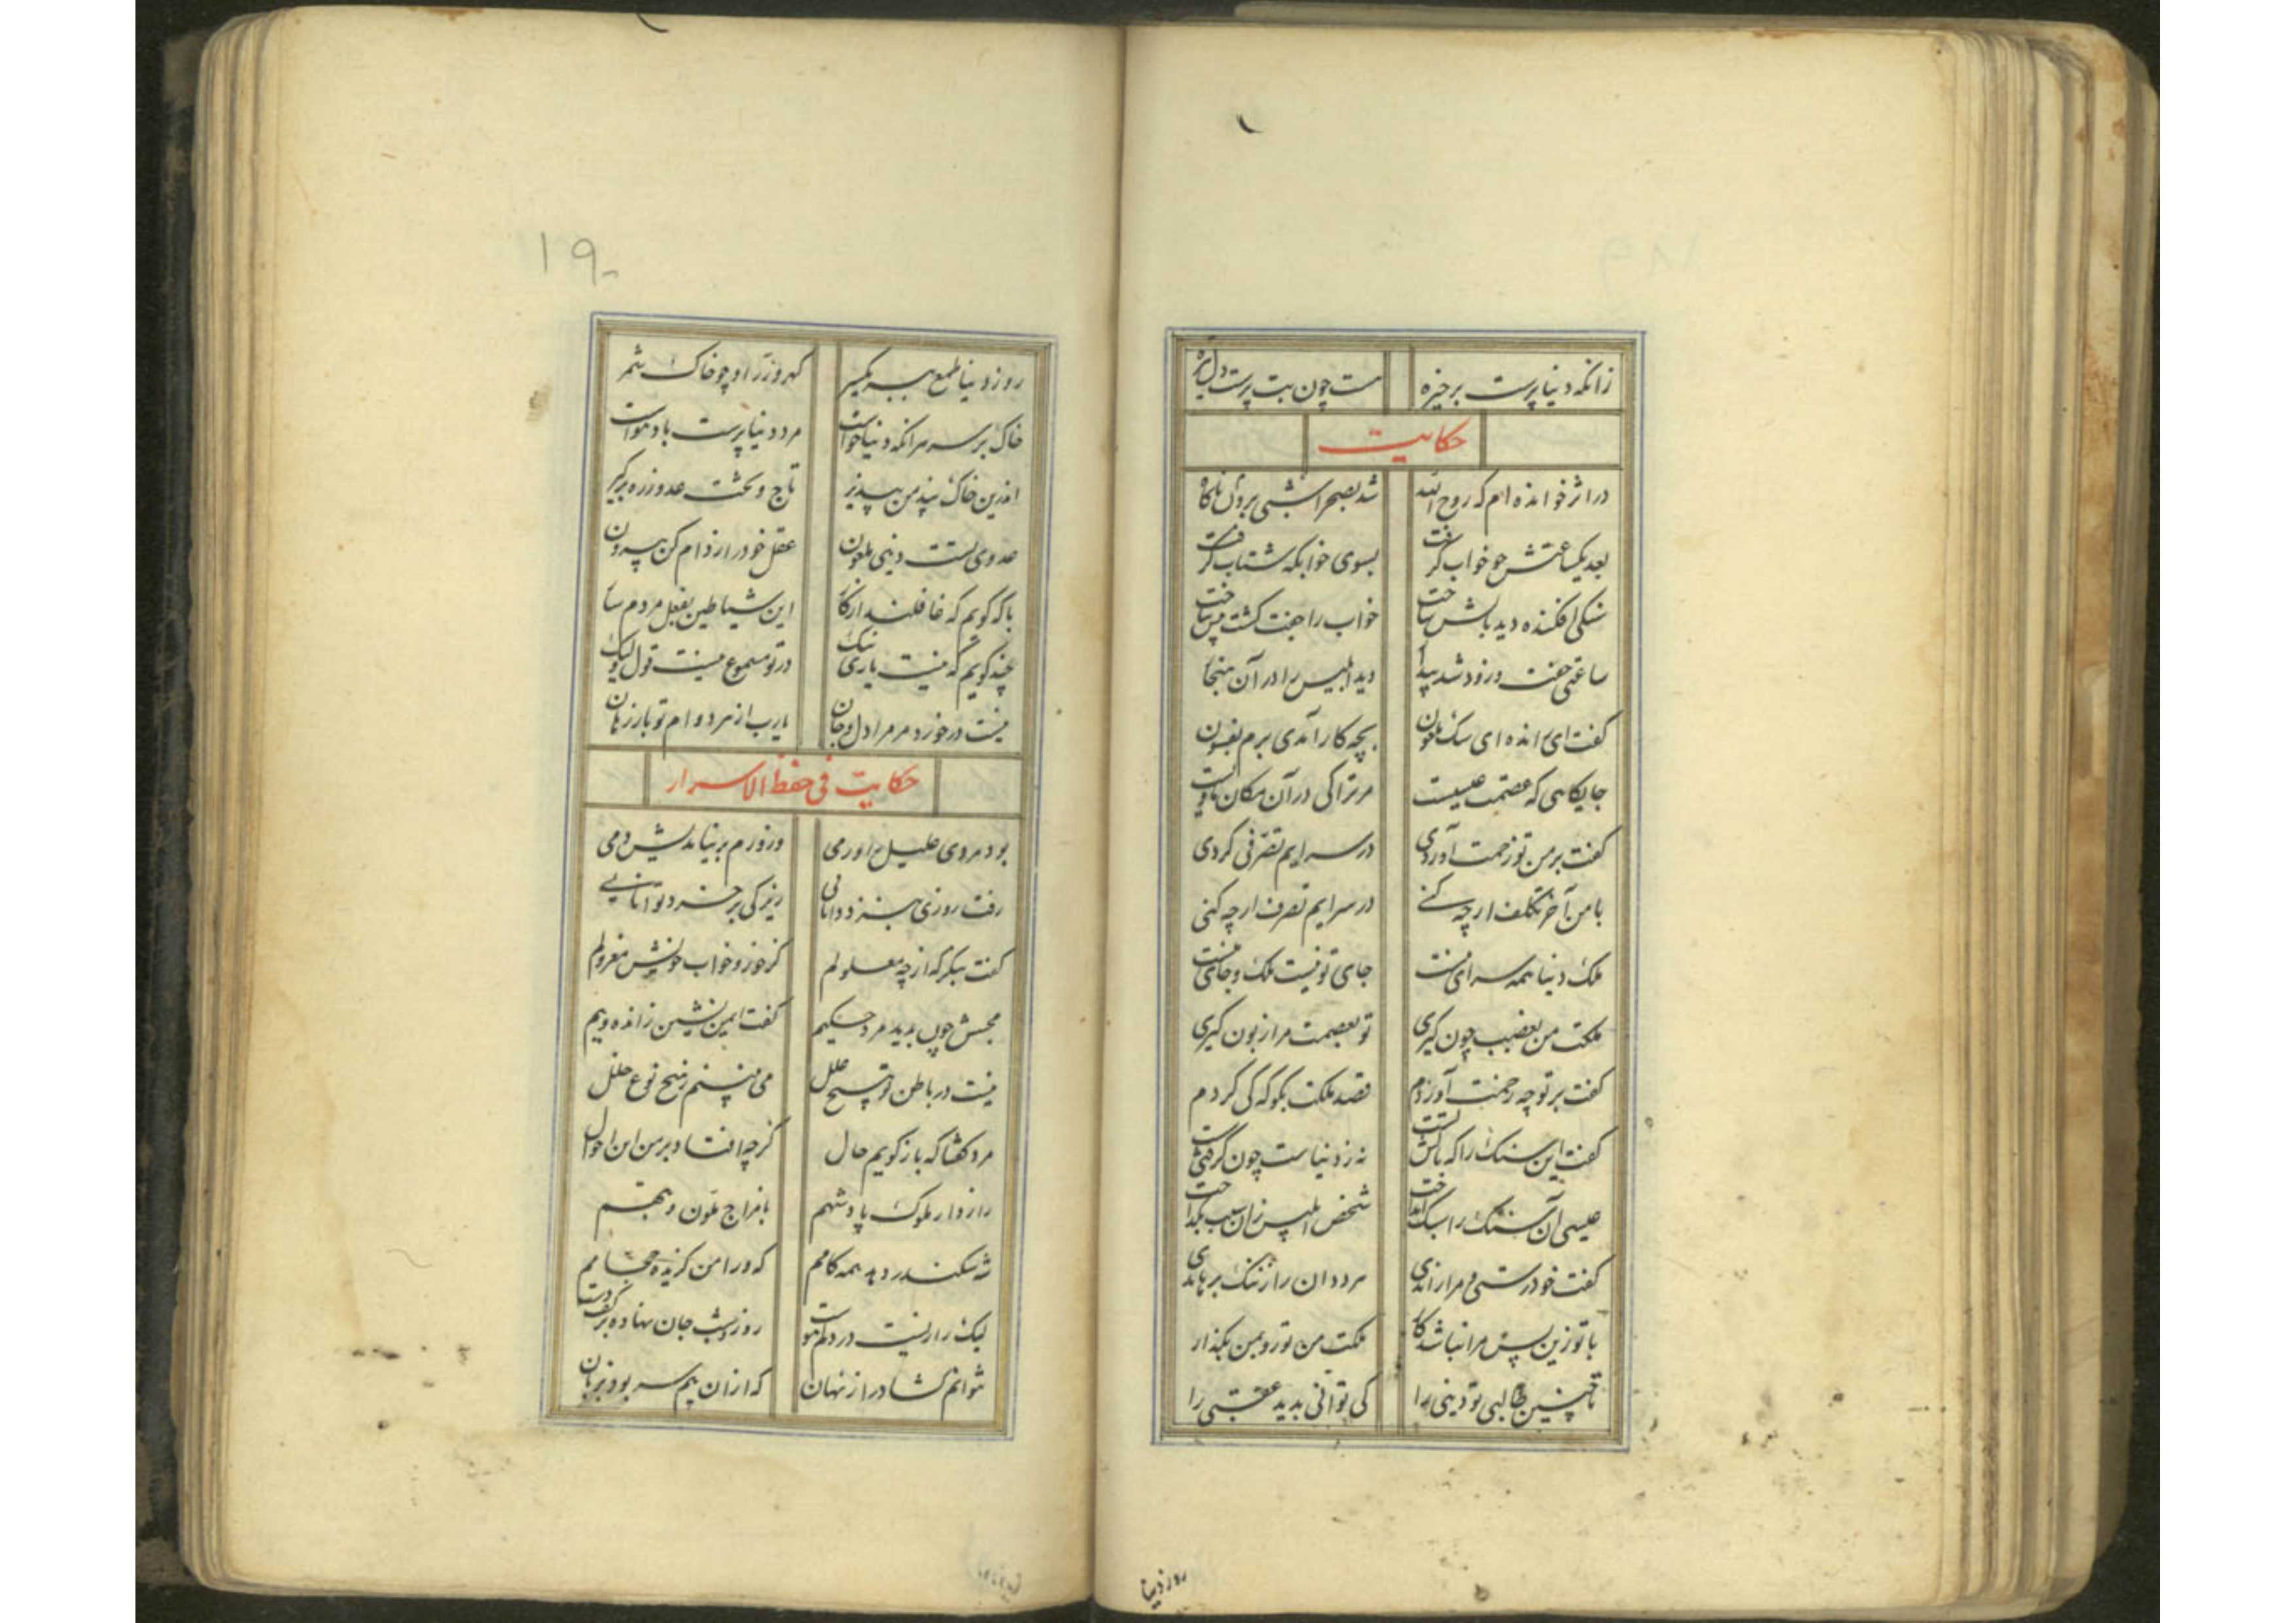 زانکه دنیا پرست بر خیره هست چون بت پرست دل تیره
حکایت
در اثر خوانده ام که روح الله شد بصحرا شبی برون ناگاه
بعد یکساعتش چو خواب گرفت بسوی خوابگه شتاب گرفت
سنکی افکنده دید بالش ساخت خواب را جفت گشت پس ساخت
ساعتی خفت و زود شد بیدار دید ابلیس را در آن هنجار
گفت ای رانده ای سک ملعون بچه کار آمدی برم بفسون
جایکاهی که عصمت عیسیست مر ترا کی در آن مکان ماویست
گفت بر من تو زحمت آوردی در سرایم تصرفی کردی
با من آخر تکلف ارچه کنی در سرایم تصرف ارچه کنی
ملک دنیا همه سرای منست جای تو نیست ملک و جای منست
ملکت من بغصب چون کیری تو بعصمت مرا زبون کیری
گفت بر تو چه زحمت آوردم قصد ملکت بگو که کی کردم
گفت این سنک را که بالش تست نه ز دنیاست چون گرفتی
عیسی آن سنک را سبک انداخت شخص ابلیس زان سبب بگداخت
گفت خود رستی و مرا راندی هر دوان را ز بند برهاندی
با تو زین پس مرا نباشد کار ملکت من تو رو بمن بگذار
تا چنین طالبی تو دینی را کی توانی بدید عقبی را
روز دنیا
۱۹۰
روز دنیا طمع ببر یکسر گهر و زر او چو خاک شمر
خاک بر سر هر آنکه دنیا خواست مرد دنیا پرست باد هواست
اندرین خاک پند من بپذیر تاج و تخت عدو ز ره برگیر
عدوی تست دینی ملعون عقل خود را ز دام کن بیرون
با که گویم که غافلند از کار این شیاطین بفعل مردم سار
چند گویم که نیست یاری نیک در تو مسموع نیست قول ولیک
نیست در خورد مر مرا دل و جان یارب از هر دو ام تو باز رهان
حکایت فی حفظ الاسرار
بود مردی علیل از ورمی وز ورم بر نیامدیش دمی
رفت روزی بنزد دانایی زیرکی پر خرد توانایی
گفت بنگر که از چه معلولم کز خور و خواب خویش معزولم
مجسش چون بدید مرد حکیم گفت ایمن نشین ز انده و بیم
نیست در باطن تو هیچ خلل می نبینم ز هیچ نوع علل
مرد گفتا که باز گویم حال کز چه افتاد بر من این احوال
راز دار ملوک پادشهم با مزاج ملون و تبهم
شه سکندر دهد همه کامم که ورا من گزیده حجامم
لیک رازیست در دلم روز و شب جان نهاده بر کف دست
نتوانم گشاد راز نهان که ازان بیم سر بود بزبان